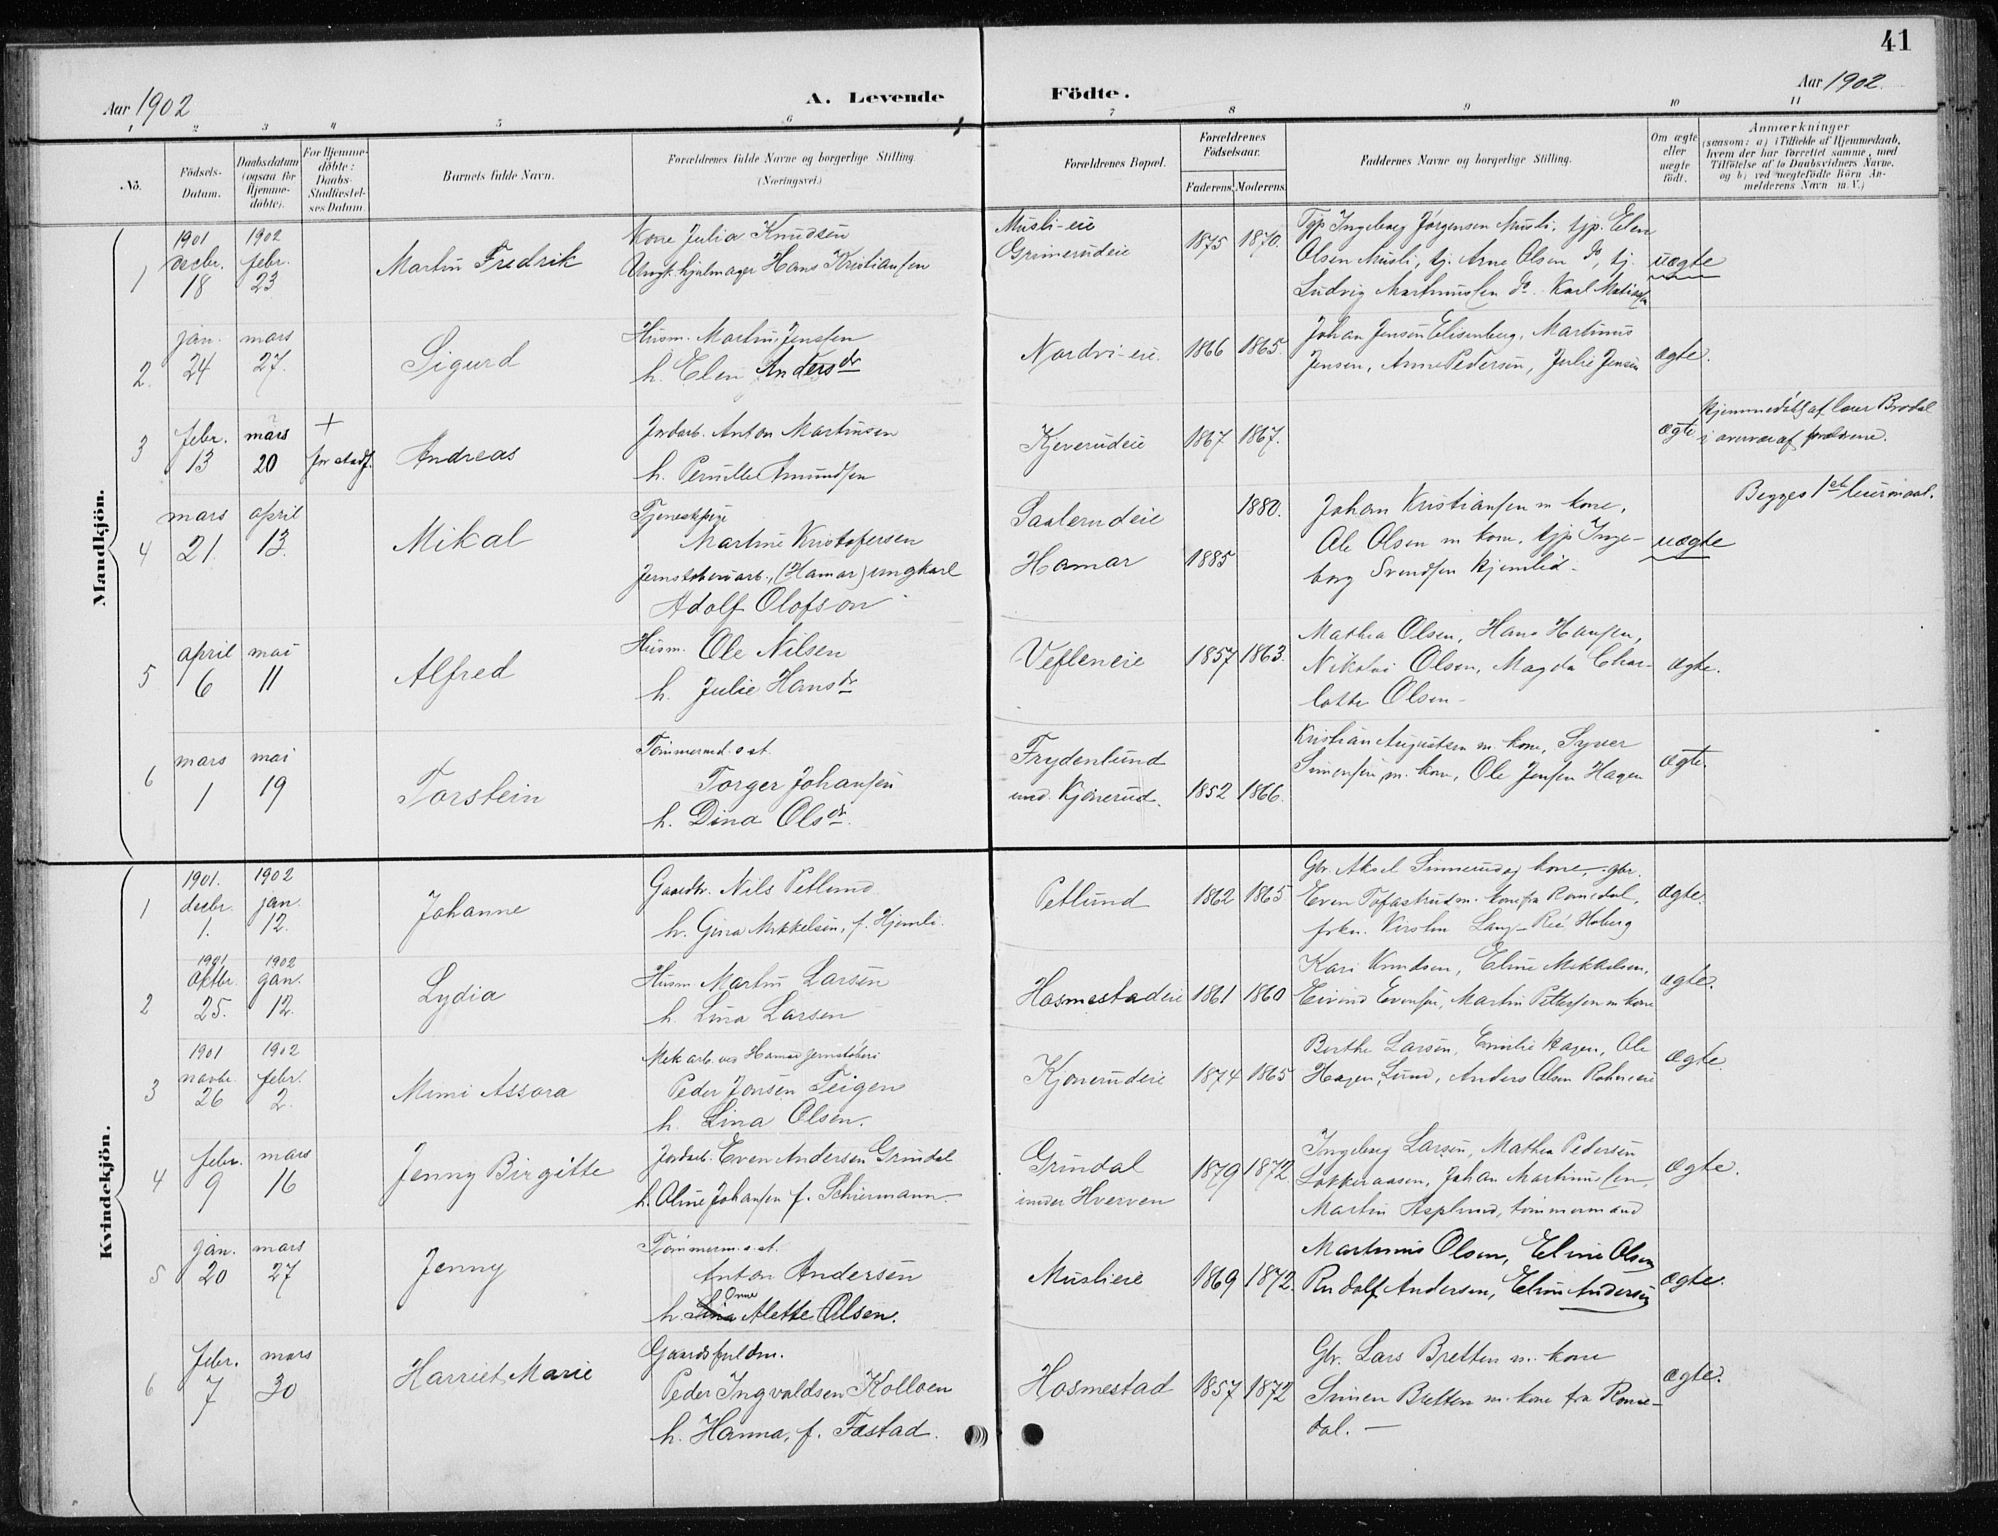 41
Aar 1902
A. Levende
Födte.
Aar 1902.
1 2 3 4 5 6 7 8 9 10 11
Nö.
Födsels-Datum.
Daabsdatum (ogsaa for Hjemme-döbte).
For Hjemme-döbte: Daabs-Stadfæstel-ses Datum.
Barnets fulde Navn.
Forældrenes fulde Navne og borgerlige Stilling.
(Næringsvei.)
Forældrenes Bopæl.
Forældrenes Födselsaar.
Faderens Moderens
Faddernes Navne og borgerlige Stilling.
Om ægte eller uægte födt.
Anmærkninger
(saasom: a) i Tilfælde af Hjemmedaab, hvem der har forrettet samme, med Tilföielse af to Daabsvidners Navne, og b) ved uægtefödte Börn An-melderens Navn m. V.)
Mandkjön.
1
1901 decbr. 18
1902 febr. 23
Martin Fredrik
Kone Julia Knudsen
Ungk. hjulmager Hans Kristiansen
Musli-eie
Grimerudeie
1875 1870.
Tjp Ingeborg Jørgensen Musli, tjp. Elen
Olsen Musli, tj. Arne Olsen do, tj.
Ludvig Martinussen do. Karl
uægte
2.
jan. 24
mars 27.
Sigurd
Husm. Martin Jenssen
h. Elen Andersdr
Nordvi-eie
1866 1865.
Johan Jensen Elisenberg, Martinus
Jensen, Anne Pedersen, Julie Jensen
ægte.
3
febr. 13
mars 20
+
for stadf.
Andreas
Jordarb. Anton Martinsen
h. Pernille Amundsen
Kjeverudeie
1867 1867.
ægte
Hjemmedøbt af lærer Brodal
i overvær af forældrene.
4
mars 21.
april 13.
Mikal
Tjenestepige
Martine Kristofersen
Jernstøberiarb., (Hamar) ungkarl
Adolf Olofson
Saalerudeie
Hamar
1880.
1885
Johan Kristiansen m kone,
Ole Olsen m kone, tjp Inge-
borg Svendsen Hjemlid.
uægte
Begges 1ste leiermaal.
5
april 6
mai 11
Alfred
Husm. Ole Nilsen
h. Julie Hansdr
Vefleneie
1857 1863.
Mathea Olsen, Hans Hansen,
Nikolai Olsen, Magda Char-
lotte Olsen
ægte.
6
mars 1
mai 19
Torstein
Tömmermd. o st.
Torger Johansen
h. Dina Olsdr.
Frydenlund
und. Kjønerud.
1852 1866.
Kristian Augustsen m. kone, Syver
Simensen m. kone, Ole Jensen Hagen
ægte.
Kvindekjön.
1
1901. decbr. 1.
1902 jan. 12.
Johanne
Gaardbr. Nils Petlund
h. Gina Mikkelsen, f. Hjemli.
Petlund
1862 1865
Gbr. Aksel Sinnerud og kone, gbr.
Even Tofastrud m. kone fra Romedal,
frkn. Kirsten Lang-Ree, Hoberg
ægte.
2
1901 oktbr. 25.
1902 jan. 12.
Lydia
Husm Martin Larsen
h. Lina Larsen
Hosmestadeie
1861 1860
Kari Knudsen, Eline Mikkelsen,
Eivind Evensen, Martin Pettersen m kone
ægte.
3
1901 novbr. 26
1902 febr. 2.
Mimi Assora
Mek arb. ved Hamar jernstøberi
Peder Jonsen Teigen
h. Lina Olsen.
Kjønerudeie
1874 1865
Berthe Larsen, Emilie Hagen, Ole
Hagen, Lund, Anders Olsen
ægte.
4
febr. 9
mars 16
Jenny Birgitte
Jordarb. Even Andersen Grindal
h. Oline Johansen f. Schiermann
Grindal
under Hverven
1879 1872
Ingeborg Larsen, Mathea Pedersen
Løkkeraasen, Johan Martinussen,
Martin Asplund, tömmermand
ægte.
5
jan. 20
mars 27
Jenny
Tömmerm. o. st.
Anton Andersen
h. Lina Anne Alette Olsen.
Muslieie
1869 1872.
Martinus Olsen, Eline Olsen
Rudolf Andersen, Eline Andersen
ægte.
6
febr. 7
mars 30
Harriet Marie
Gaardsfuldm.
Peder Ingvaldsen Kolloen
h. Hanna, f. Fæstad.
Hosmestad
1857 1872
Gbr. Lars Bretten m. kone
Simen Bretten m. kone fra Rome-
dal.
ægte.